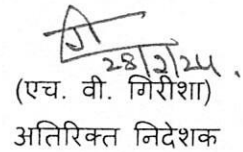 28/2/24.
(एच. वी. गिरीशा)
अतिरिक्त निदेशक